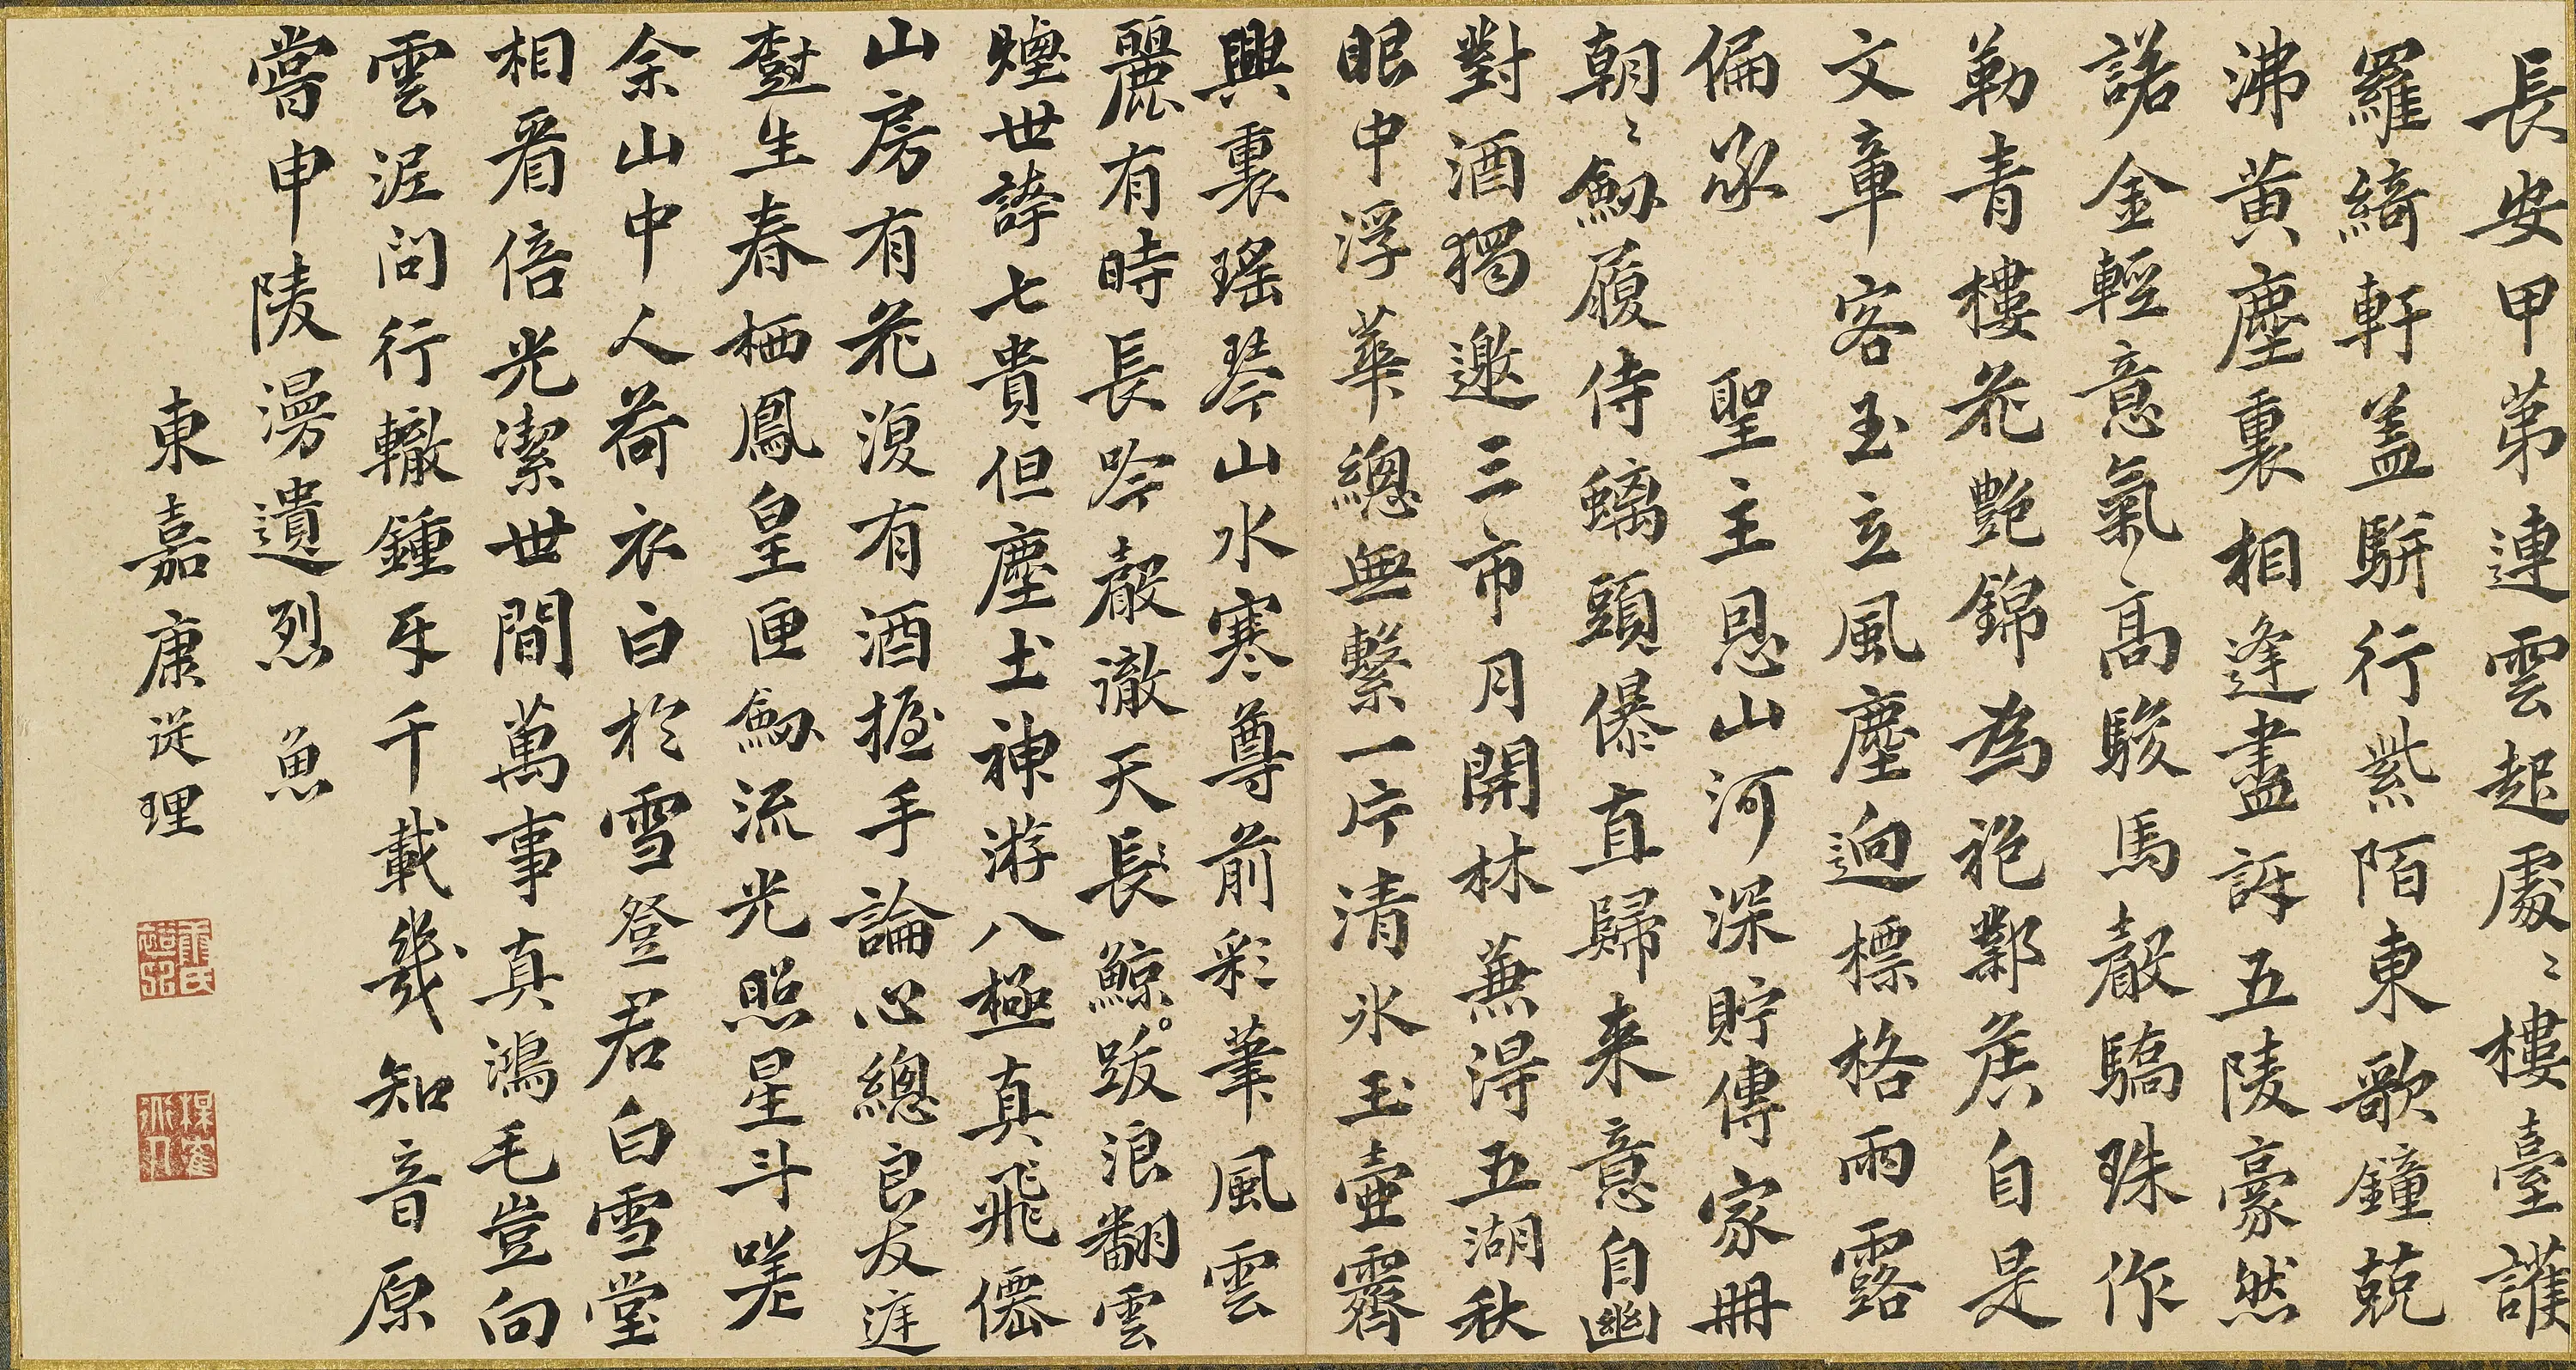 長安甲第連雲起處〻樓臺護
羅綺軒蓋騈行紫陌東歌鐘兢
沸黄塵裏相逢盡訴五陵豪然
諾金輕意氣高駿馬嚴驕珠作
勒青樓花艶錦為袍鄴侯自是
文章客玉立風塵迥標格雨露
偏承 聖主恩山河深貯傳家冊
朝〻劒履侍螭頭儤直歸来意自幽
對酒獨邀三市月開林兼得五湖秋
眼中浮華總無繫一片清氷玉壺霽
興裏瑤琴山水寒尊前彩筆風雲
麗有時長吟聲徹天長鯨跋浪翻雲
煙世誇七貴但塵土神游八極真飛僊
山房有花復有酒握手論心總良友筵
臺生春栖鳳皇匣劒流光照星斗嗟
余山中人荷衣白於雪登君白雪堂
相看倍光潔世間萬事真鴻毛豈向
雲泥問行轍鍾牙千載幾知音原
嘗申陵漫遺烈 魚
東嘉康從理